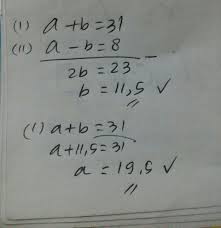 (I) a+b=31
(II) a-b=8 -
2b = 23
b = 11,5 ✓
(I) a+b=31
a+11,5=31
a = 19,5 ✓